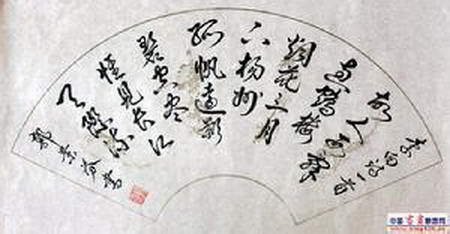 李白诗一首
故人西辞
黄鹤楼
烟花三月
下揚州
孤帆遠影
碧空尽
惟見长江
天际流